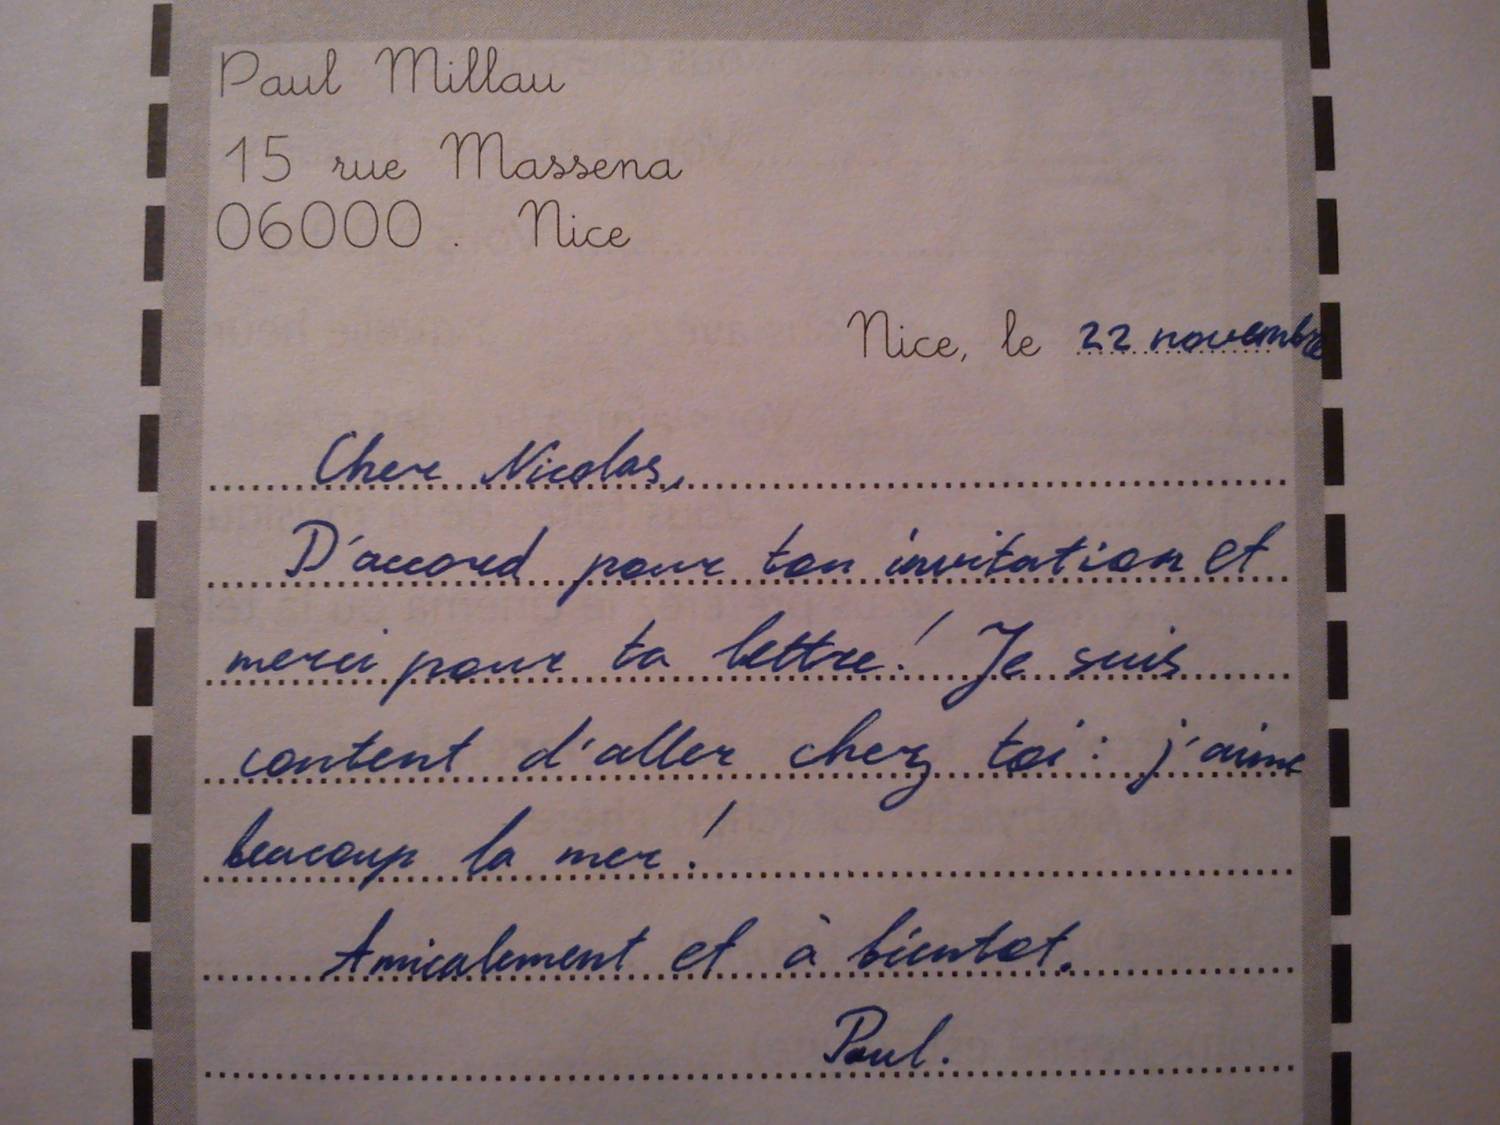 Paul Millau
15 rue Massena
06000. Nice
Nice, le 22 novembre
Cher Nicolas,
D'accord pour ton invitation et
merci pour ta lettre! Je suis
content d'aller chez toi: j'aime
beacoup la mer!
Amicalement et à bientot.
Paul.